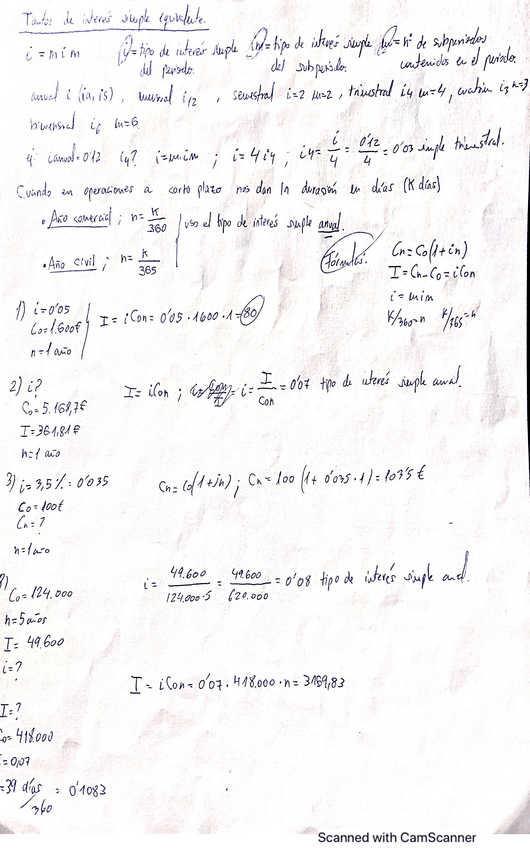 Tantos de interés simple equivalente.
i = m i m (i = tipo de interés simple (im = tipo de interés simple (m = nº de subperiodos
del periodo. del subperiodo. contenidos en el periodo.
anual i (ia, is), mensual i12, semestral i=2 m=2, trimestral i4 m=4, cuatrim i3 m=3
bimensual i6 m=6.
ej: i anual=0'12 i4? i=m·im ; i=4 i4 ; i4 = i/4 = 0'12/4 = 0'03 simple trimestral.
Cuando en operaciones a corto plazo nos dan la duración en días (K días)
• Año comercial ; n = K/360
uso el tipo de interés simple anual.
• Año civil ; n = K/365
Fórmulas:
Cn = Co(1+in)
I = Cn-Co = iCon
i = m im
K/360=n K/365=n
1) i=0'05
Co=1.600€
n=1 año
I = iCon = 0'05 · 1600 · 1 = 80
2) i?
Co=5.168,7€
I=361,81€
n=1 año
I = iCon ; i = I/Con = 0'07 tipo de interés simple anual.
3) i=3,5% = 0'035
Co=100€
Cn=?
n=1 año
Cn = Co(1+in) ; Cn = 100 (1+0'035·1) = 103'5€
Co=124.000
n=5 años
I = 49.600
i=?
i = 49.600/124.000·5 = 49.600/620.000 = 0'08 tipo de interés simple anual.
I=?
Co=418.000
=0,07
=39 días/360 = 0'1083
I = iCon = 0'07 · 418.000 · n = 3169,83
Scanned with CamScanner